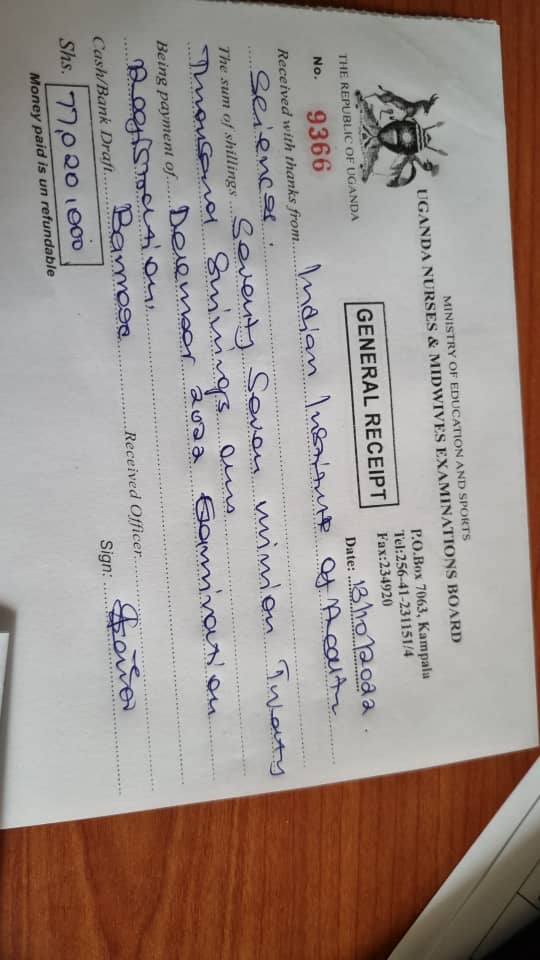 MINISTRY OF EDUCATION AND SPORTS
UGANDA NURSES & MIDWIVES EXAMINATIONS BOARD
P.O.Box 7063, Kampala
Tel:256-41-231151/4
Fax:234920
THE REPUBLIC OF UGANDA
GENERAL RECEIPT
No. 9366
Date: 13/10/2022.
Received with thanks from Indian Institute of Health
Sciences.
The sum of shillings Seventy Seven million Twenty
Thousand Shillings only
Being payment of December 2022 Examination
Registration.
Cash/Bank Draft
Received Officer
Sign:
Shs. 77,020,000
Money paid is un refundable